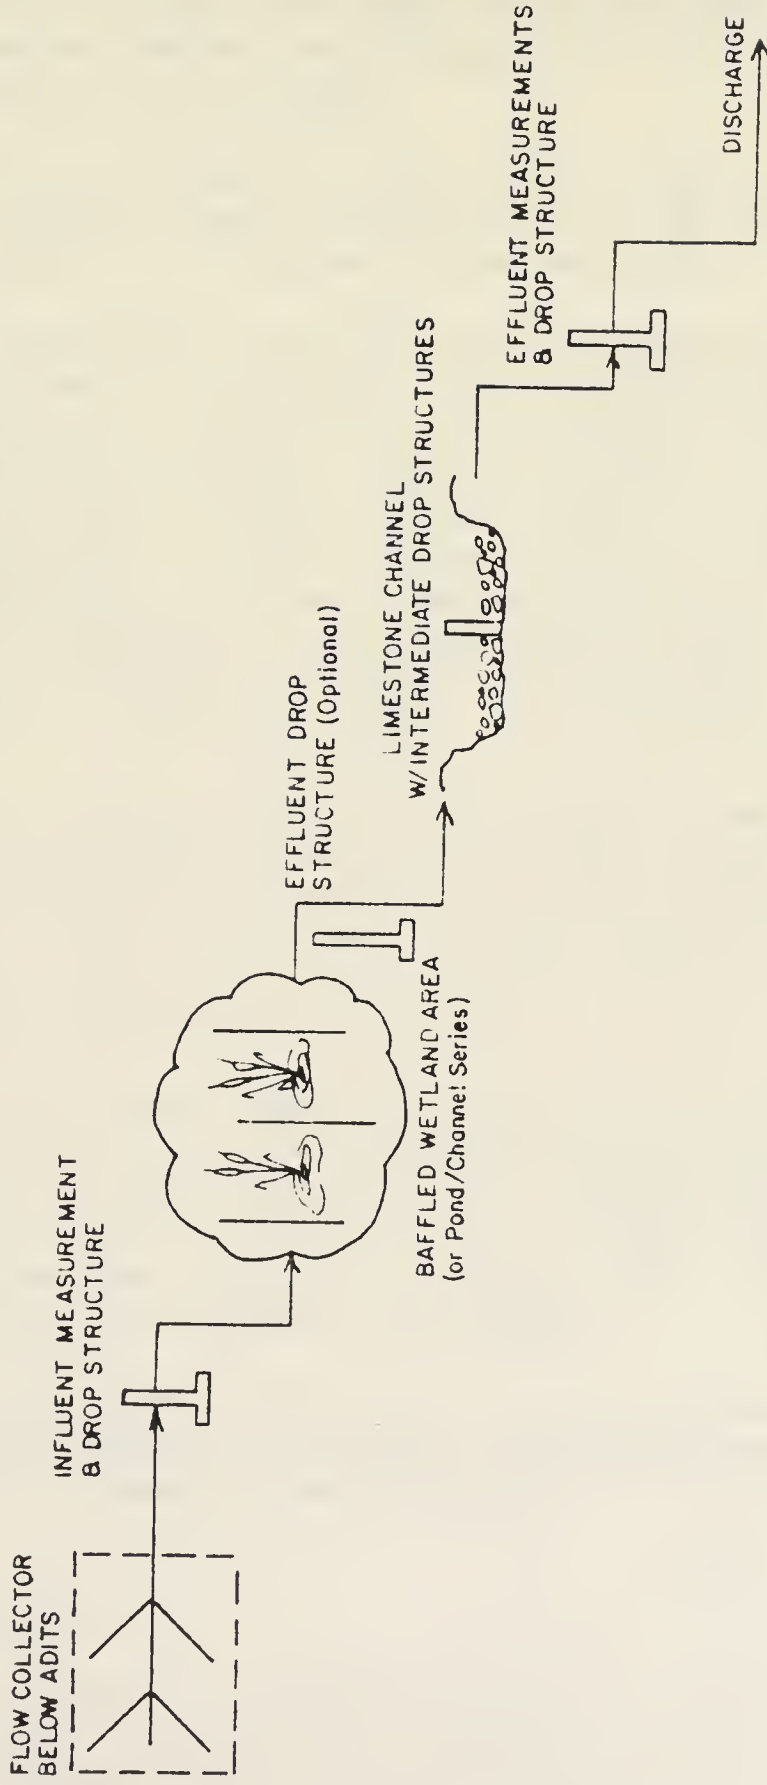 FLOW COLLECTOR
BELOW ADITS
INFLUENT MEASUREMENT
& DROP STRUCTURE
BAFFLED WETLAND AREA
(or Pond/Channel Series)
EFFLUENT DROP
STRUCTURE (Optional)
LIMESTONE CHANNEL
W/INTERMEDIATE DROP STRUCTURES
EFFLUENT MEASUREMENTS
& DROP STRUCTURE
DISCHARGE